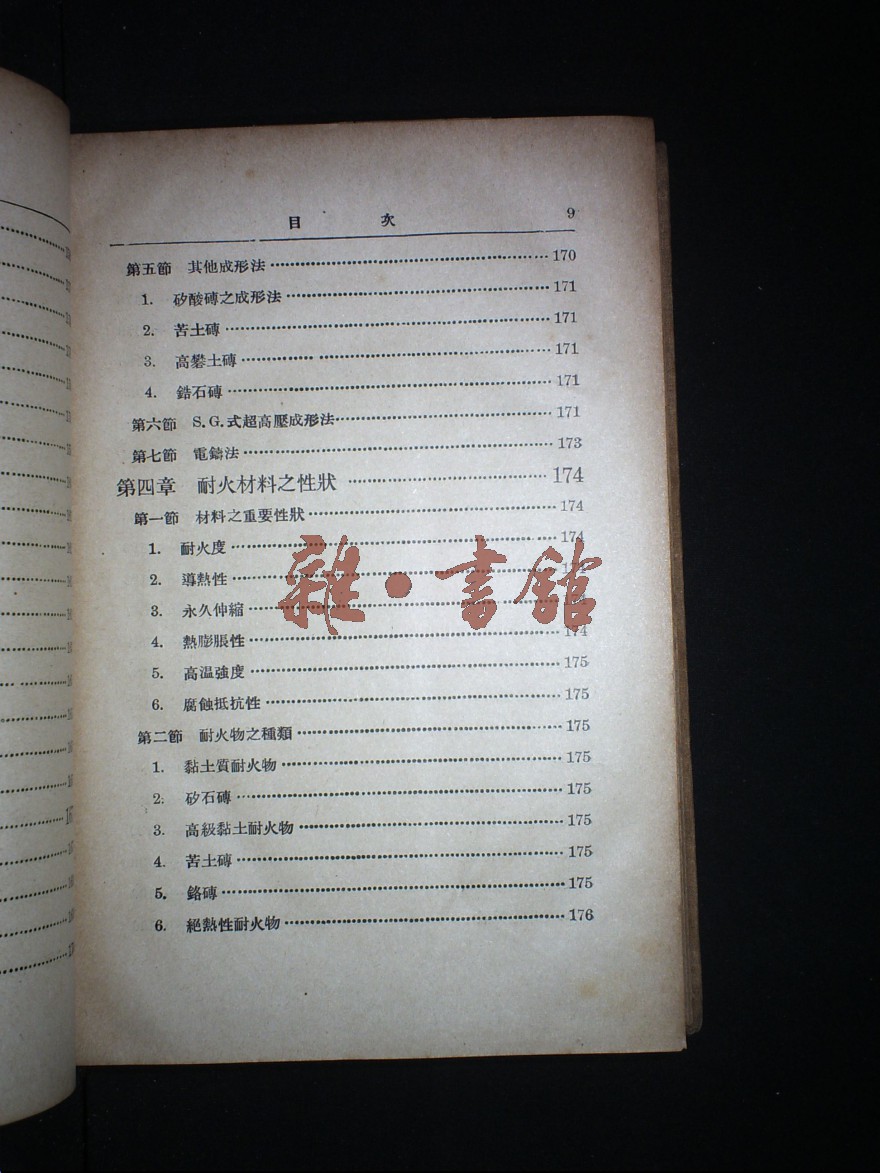 目 次 9
第五節 其他成形法 170
1. 矽酸磚之成形法 171
2. 苦土磚 171
3. 高礬土磚 171
4. 鋯石磚 171
第六節 S.G.式超高壓成形法 171
第七節 電鑄法 173
第四章 耐火材料之性狀 174
第一節 材料之重要性狀 174
1. 耐火度 174
2. 導熱性
3. 永久伸縮
4. 熱膨脹性 174
5. 高温強度 175
6. 腐蝕抵抗性 175
第二節 耐火物之種類 175
1. 黏土質耐火物 175
2. 矽石磚 175
3. 高級黏土耐火物 175
4. 苦土磚 175
5. 鉻磚 175
6. 絕熱性耐火物 176
雜·書館